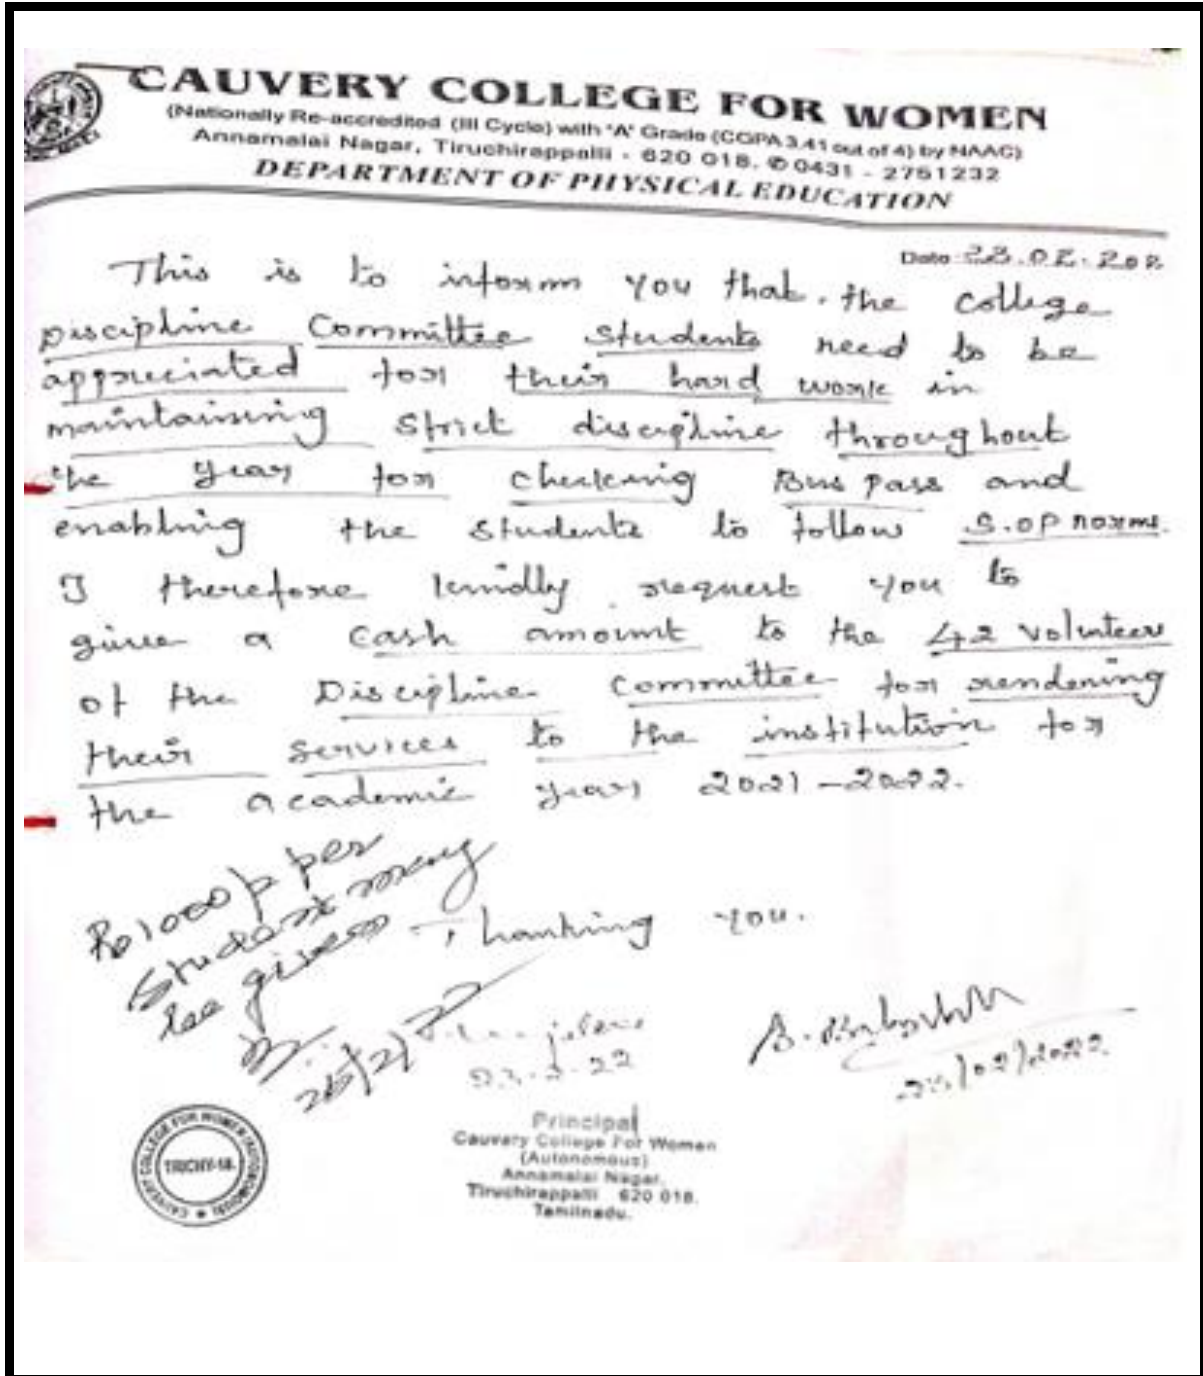 CAUVERY COLLEGE FOR WOMEN
(Nationally Re-accredited (III Cycle) with 'A' Grade (CGPA 3.41 out of 4) by NAAC)
Annamalai Nagar, Tiruchirappalli - 620 018. ✆ 0431 - 2751232
DEPARTMENT OF PHYSICAL EDUCATION
Date 23.02.202
This is to inform you that. the college
Discipline Committee students need to be
appreciated for their hard work in
maintaining strict discipline throughout
the year for checking Bus pass and
enabling the students to follow S.OP norms.
I therefore kindly request you to
give a cash amount to the 42 volunteers
of the Discipline Committee for rendering
their services to the institution for
the academic year 2021-2022.
Rs 1000/- per
student may
be given
Thanking you.
23-2-22
Principal
Cauvery College For Women
(Autonomous)
Annamalai Nagar,
Tiruchirappalli 620 018.
Tamilnadu.
CAUVERY COLLEGE FOR WOMEN (AUTONOMOUS)
TRICHY-18.